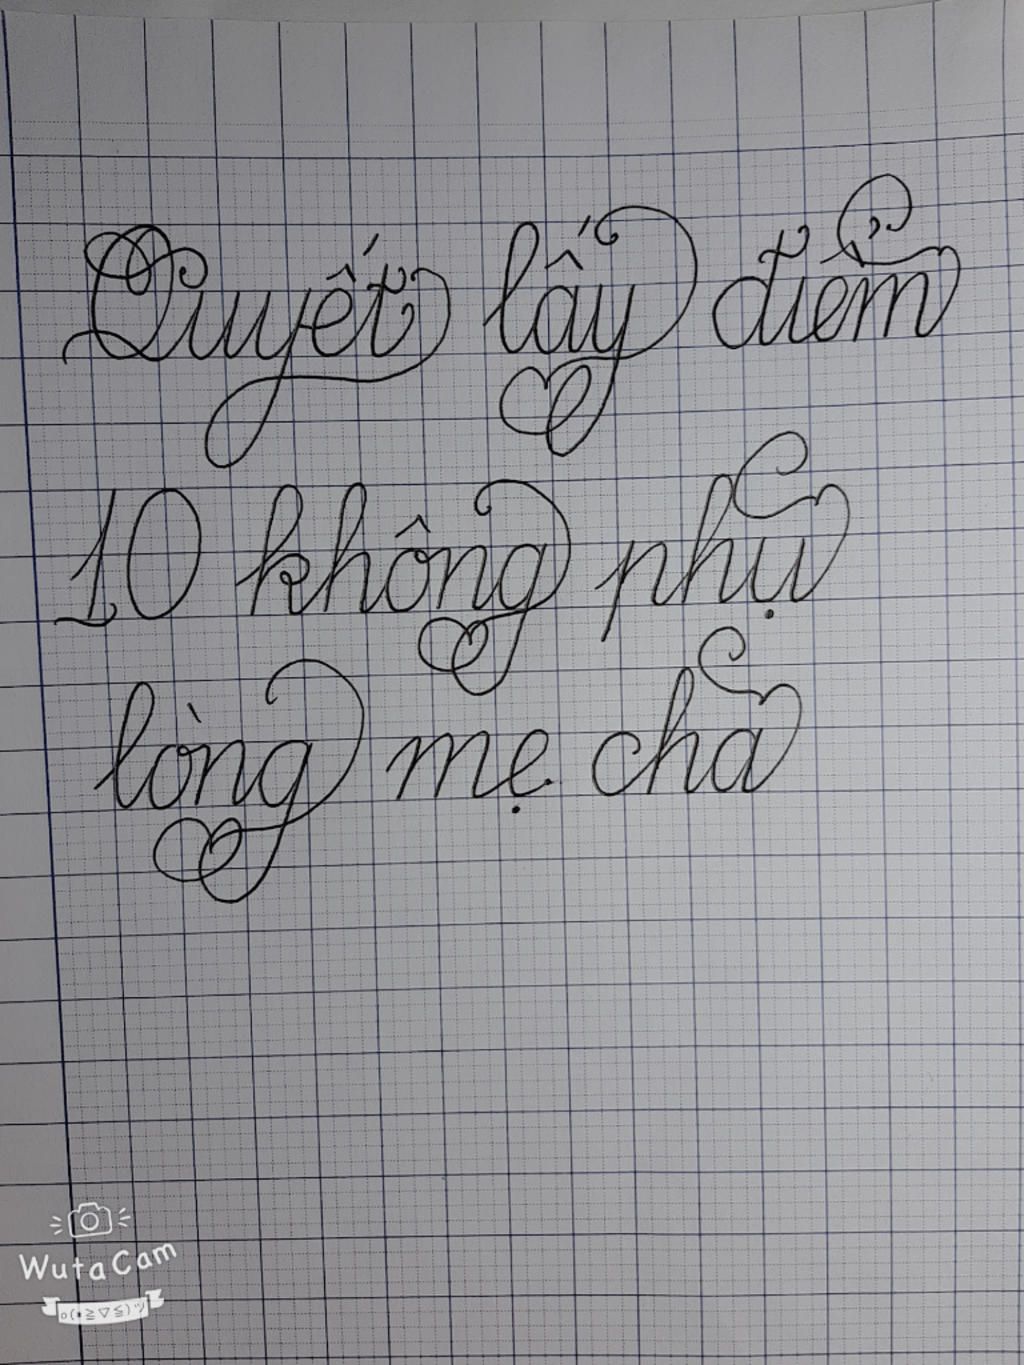 Quyết lấy điểm
10 không phụ
lòng mẹ cha
WutaCam
o(•≧▽≦)ツ